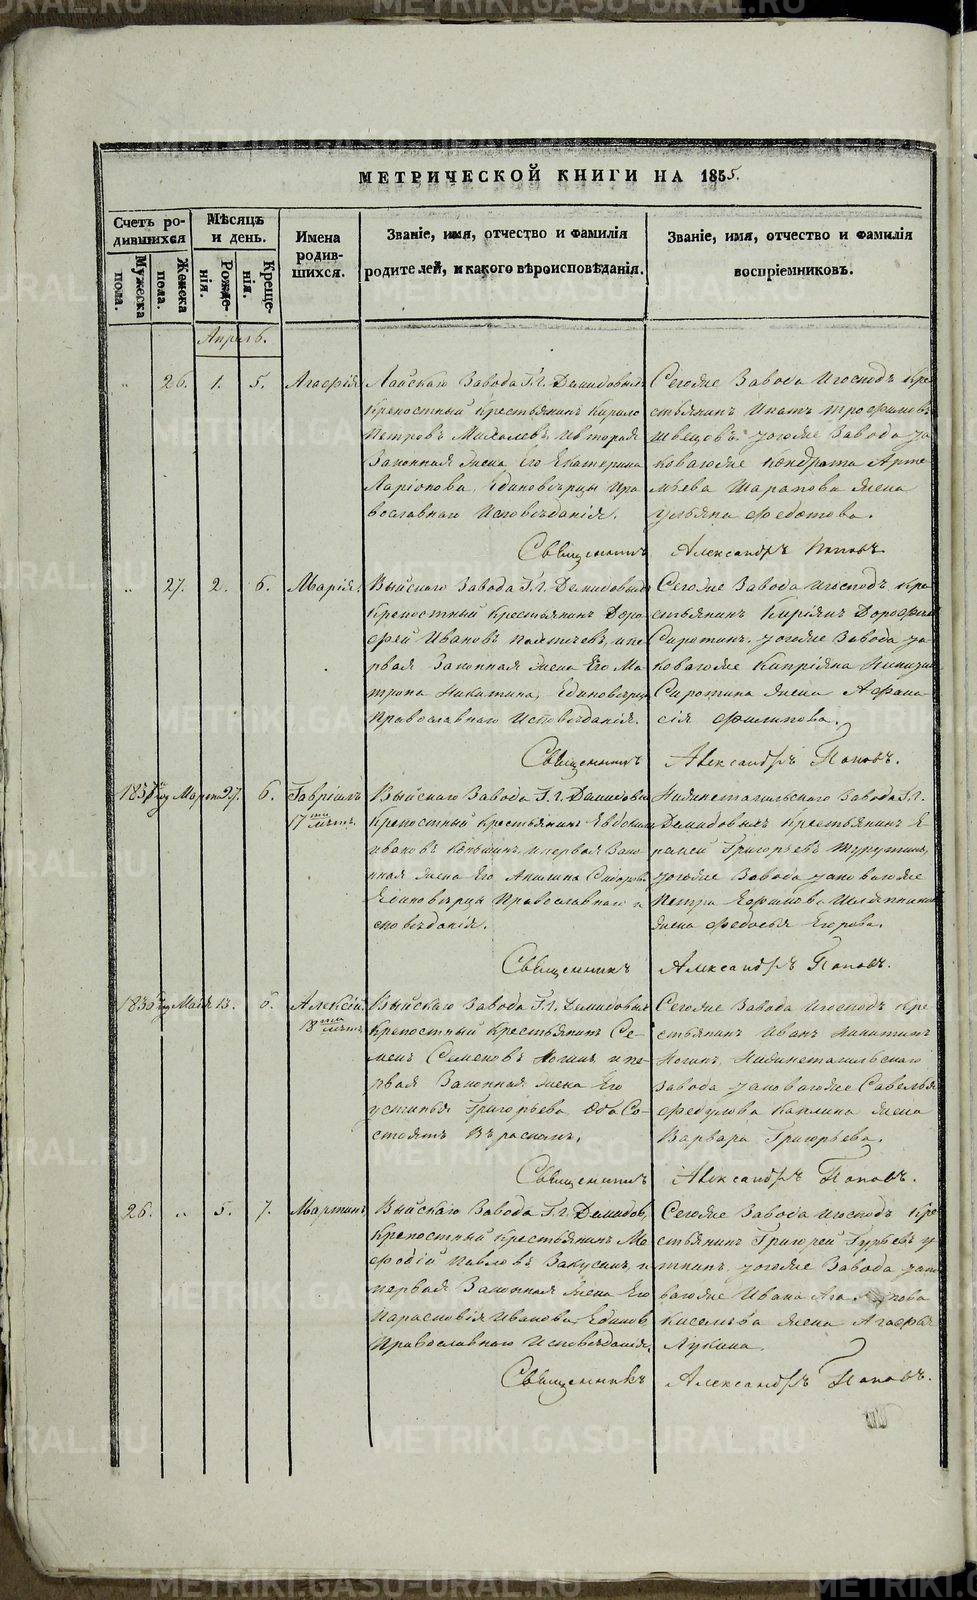 МЕТРИЧЕСКОЙ КНИГИ НА 1855.
Счетъ ро-
дившихся
Мужеска
пола.
Женска
пола.
Мѣсяцъ
и день.
Рожде-
нія.
Креще-
нія.
Имена
родив-
шихся.
Званіе, имя, отчество и фамилія
родителей, и какого вѣроисповѣданія.
Званіе, имя, отчество и фамилія
воспріемниковъ.
Апрель.
„ 26. 1. 5. Агафія
Лайскаго Завода Г.Г. Демидовыхъ
крепостный крестьянинъ Кирило
Петровъ и вторая
Законная жена Его Екатерина
Ларіонова, Единоверцы Пра
вославнаго Исповѣданія.
Сегоже Завода Игосподъ кре
стьянинъ Ипатъ Трофимовъ
Швецовъ. Тогоже Завода та
коваго же Кондрата Арте
мьева Шарапова жена
Ульяна Федотова.
Священникъ Александръ Поповъ.
„ 27. 2. 6. Марія.
Выйскаго Завода Г.Г. Демидовыхъ
Крепостный крестьянинъ Доро
фей Ивановъ и пе
рвая Законная жена Его Ма
трона Никитина, Единоверцы
Православнаго Исповѣданія.
Сегоже Завода Игосподъ кре
стьянинъ Киріянъ Дорофеевъ
Сиротинъ. Тогоже Завода та
коваго же Кипріяна
Сиротина жена Афана
сія Филипова.
Священникъ Александръ Поповъ.
Марта 27. 6. Гавріилъ
17ти лѣтъ.
Выйскаго Завода Г.Г. Демидовы
Крепостный крестьянинъ Евдокимъ
Ивановъ и первая Зако
нная жена Его Акилина Сидорова
Единоверцы Православнаго и
сповѣданія.
Нижнетагильскаго Завода Г.Г.
Демидовыхъ крестьянинъ Е
ремей Григорьевъ
Тогоже Завода таковаго же
Петра Ефимова
жена Федосья Егорова.
Священникъ Александръ Поповъ.
Маія 13. 6. Алексѣй.
18ти лѣтъ
Выйскаго Завода Г.Г. Демидовыхъ
крепостный крестьянинъ Се-
менъ Семеновъ Ногинъ и пе-
рвая Законная жена Его
Устинья Григорьева, Оба Со-
стоятъ Въ расколѣ.
Сегоже Завода Игосподъ кре
стьянинъ Иванъ Никитинъ
Ногинъ, Нижнетагильскаго
Завода таковаго же Савелья
Федулова жена
Варвара Григорьева.
Священникъ Александръ Поповъ.
26. „ 5. 7. Мартинъ
Выйскаго Завода Г.Г. Демидов.
Крепостный крестьянинъ Ме
фодій Павловъ и
первая Законная жена Его
Парасковія Иванова, Единов.
Православнаго Исповѣданія.
Сегоже Завода Игосподъ кре
стьянинъ Григорей Гурьевъ
Тогоже Завода тако
ваго же Ивана
Киселева жена Агафья
Лукина.
Священникъ Александръ Поповъ.
METRIKI.GASO-URAL.RU